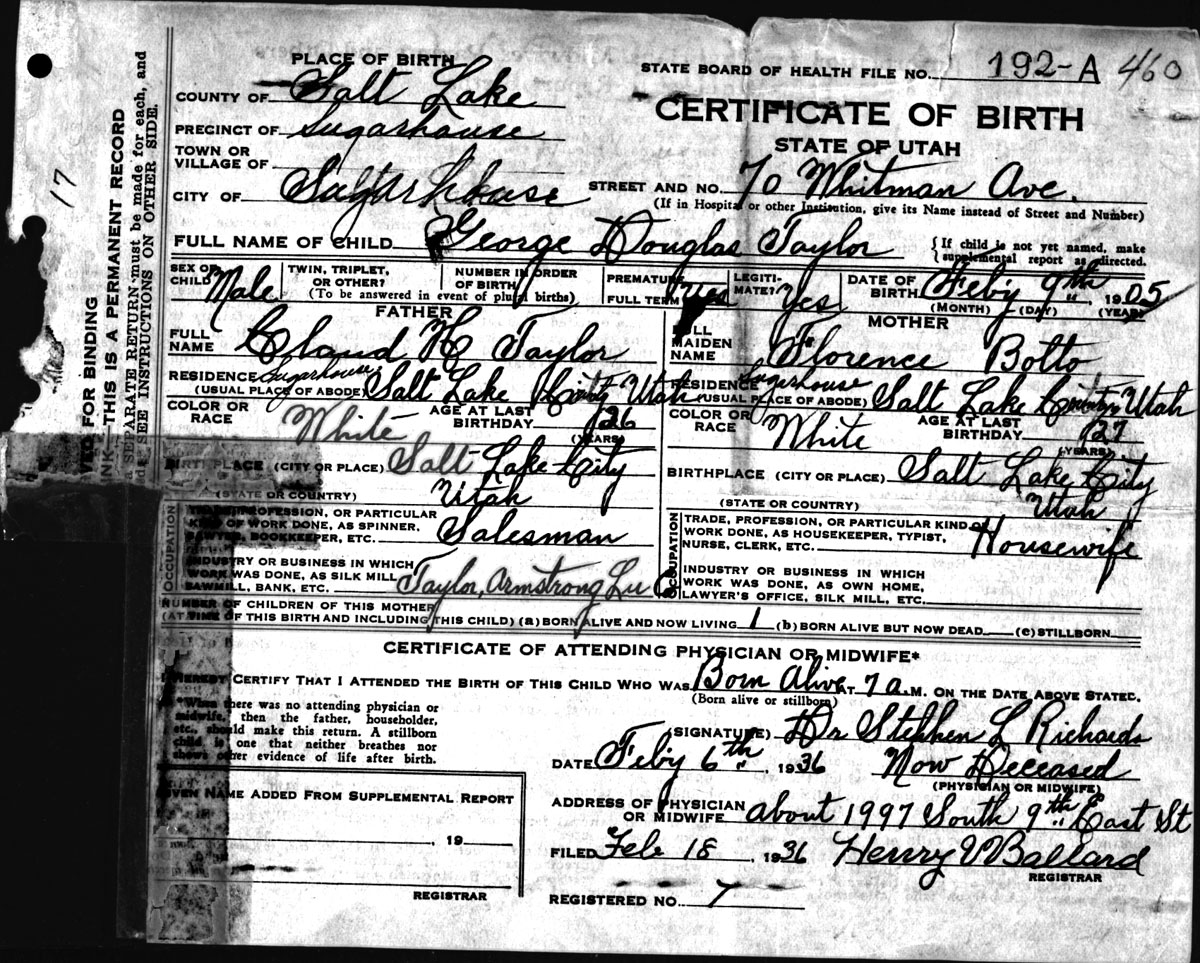 PLACE OF BIRTH
STATE BOARD OF HEALTH FILE NO. 192-A 460
COUNTY OF Salt Lake
CERTIFICATE OF BIRTH
PRECINCT OF Sugarhouse
STATE OF UTAH
TOWN OR
VILLAGE OF
CITY OF Sugarhouse
STREET AND NO. 70 Whitman Ave.
(If in Hospital or other Institution, give its Name instead of Street and Number)
FULL NAME OF CHILD George Douglas Taylor
{If child is not yet named, make
supplemental report as directed.
SEX OF
CHILD Male
TWIN, TRIPLET,
OR OTHER?
NUMBER IN ORDER
OF BIRTH
(To be answered in event of plural births)
PREMATURE
FULL TERM Yes
LEGITI-
MATE? Yes
DATE OF
BIRTH Feby 9th, 1905
(MONTH) (DAY) (YEAR)
FATHER
FULL
NAME Claud H Taylor
RESIDENCE Sugarhouse
(USUAL PLACE OF ABODE) Salt Lake Utah
COLOR OR
RACE White
AGE AT LAST
BIRTHDAY 26
(YEARS)
BIRTHPLACE (CITY OR PLACE) Salt Lake City
(STATE OR COUNTRY) Utah
OCCUPATION
TRADE, PROFESSION, OR PARTICULAR
KIND OF WORK DONE, AS SPINNER,
SAWYER, BOOKKEEPER, ETC. Salesman
INDUSTRY OR BUSINESS IN WHICH
WORK WAS DONE, AS SILK MILL
SAWMILL, BANK, ETC. Taylor, Armstrong Lu
MOTHER
FULL
MAIDEN
NAME Florence Botto
RESIDENCE Sugarhouse
(USUAL PLACE OF ABODE) Salt Lake Utah
COLOR OR
RACE White
AGE AT LAST
BIRTHDAY 27
(YEARS)
BIRTHPLACE (CITY OR PLACE) Salt Lake City
(STATE OR COUNTRY) Utah
OCCUPATION
TRADE, PROFESSION, OR PARTICULAR KIND OF
WORK DONE, AS HOUSEKEEPER, TYPIST,
NURSE, CLERK, ETC. Housewife
INDUSTRY OR BUSINESS IN WHICH
WORK WAS DONE, AS OWN HOME,
LAWYER'S OFFICE, SILK MILL, ETC.
NUMBER OF CHILDREN OF THIS MOTHER
(AT TIME OF THIS BIRTH AND INCLUDING THIS CHILD) (a) BORN ALIVE AND NOW LIVING 1 (b) BORN ALIVE BUT NOW DEAD (c) STILLBORN
CERTIFICATE OF ATTENDING PHYSICIAN OR MIDWIFE*
I HEREBY CERTIFY THAT I ATTENDED THE BIRTH OF THIS CHILD WHO WAS Born Alive AT 7 a. M. ON THE DATE ABOVE STATED.
(Born alive or stillborn)
*When there was no attending physician or
midwife, then the father, householder,
etc., should make this return. A stillborn
child is one that neither breathes nor
shows other evidence of life after birth.
(SIGNATURE) Dr Stephen L Richards
DATE Feby 6th, 1936 Now Deceased
(PHYSICIAN OR MIDWIFE)
GIVEN NAME ADDED FROM SUPPLEMENTAL REPORT
, 19
REGISTRAR
ADDRESS OF PHYSICIAN
OR MIDWIFE about 1997 South 9th East St
FILED Feb 18, 1936 Henry V Ballard
REGISTRAR
REGISTERED NO. 7
17
VED FOR BINDING
NK—THIS IS A PERMANENT RECORD
SEPARATE RETURN must be made for each, and
SEE INSTRUCTIONS ON OTHER SIDE.